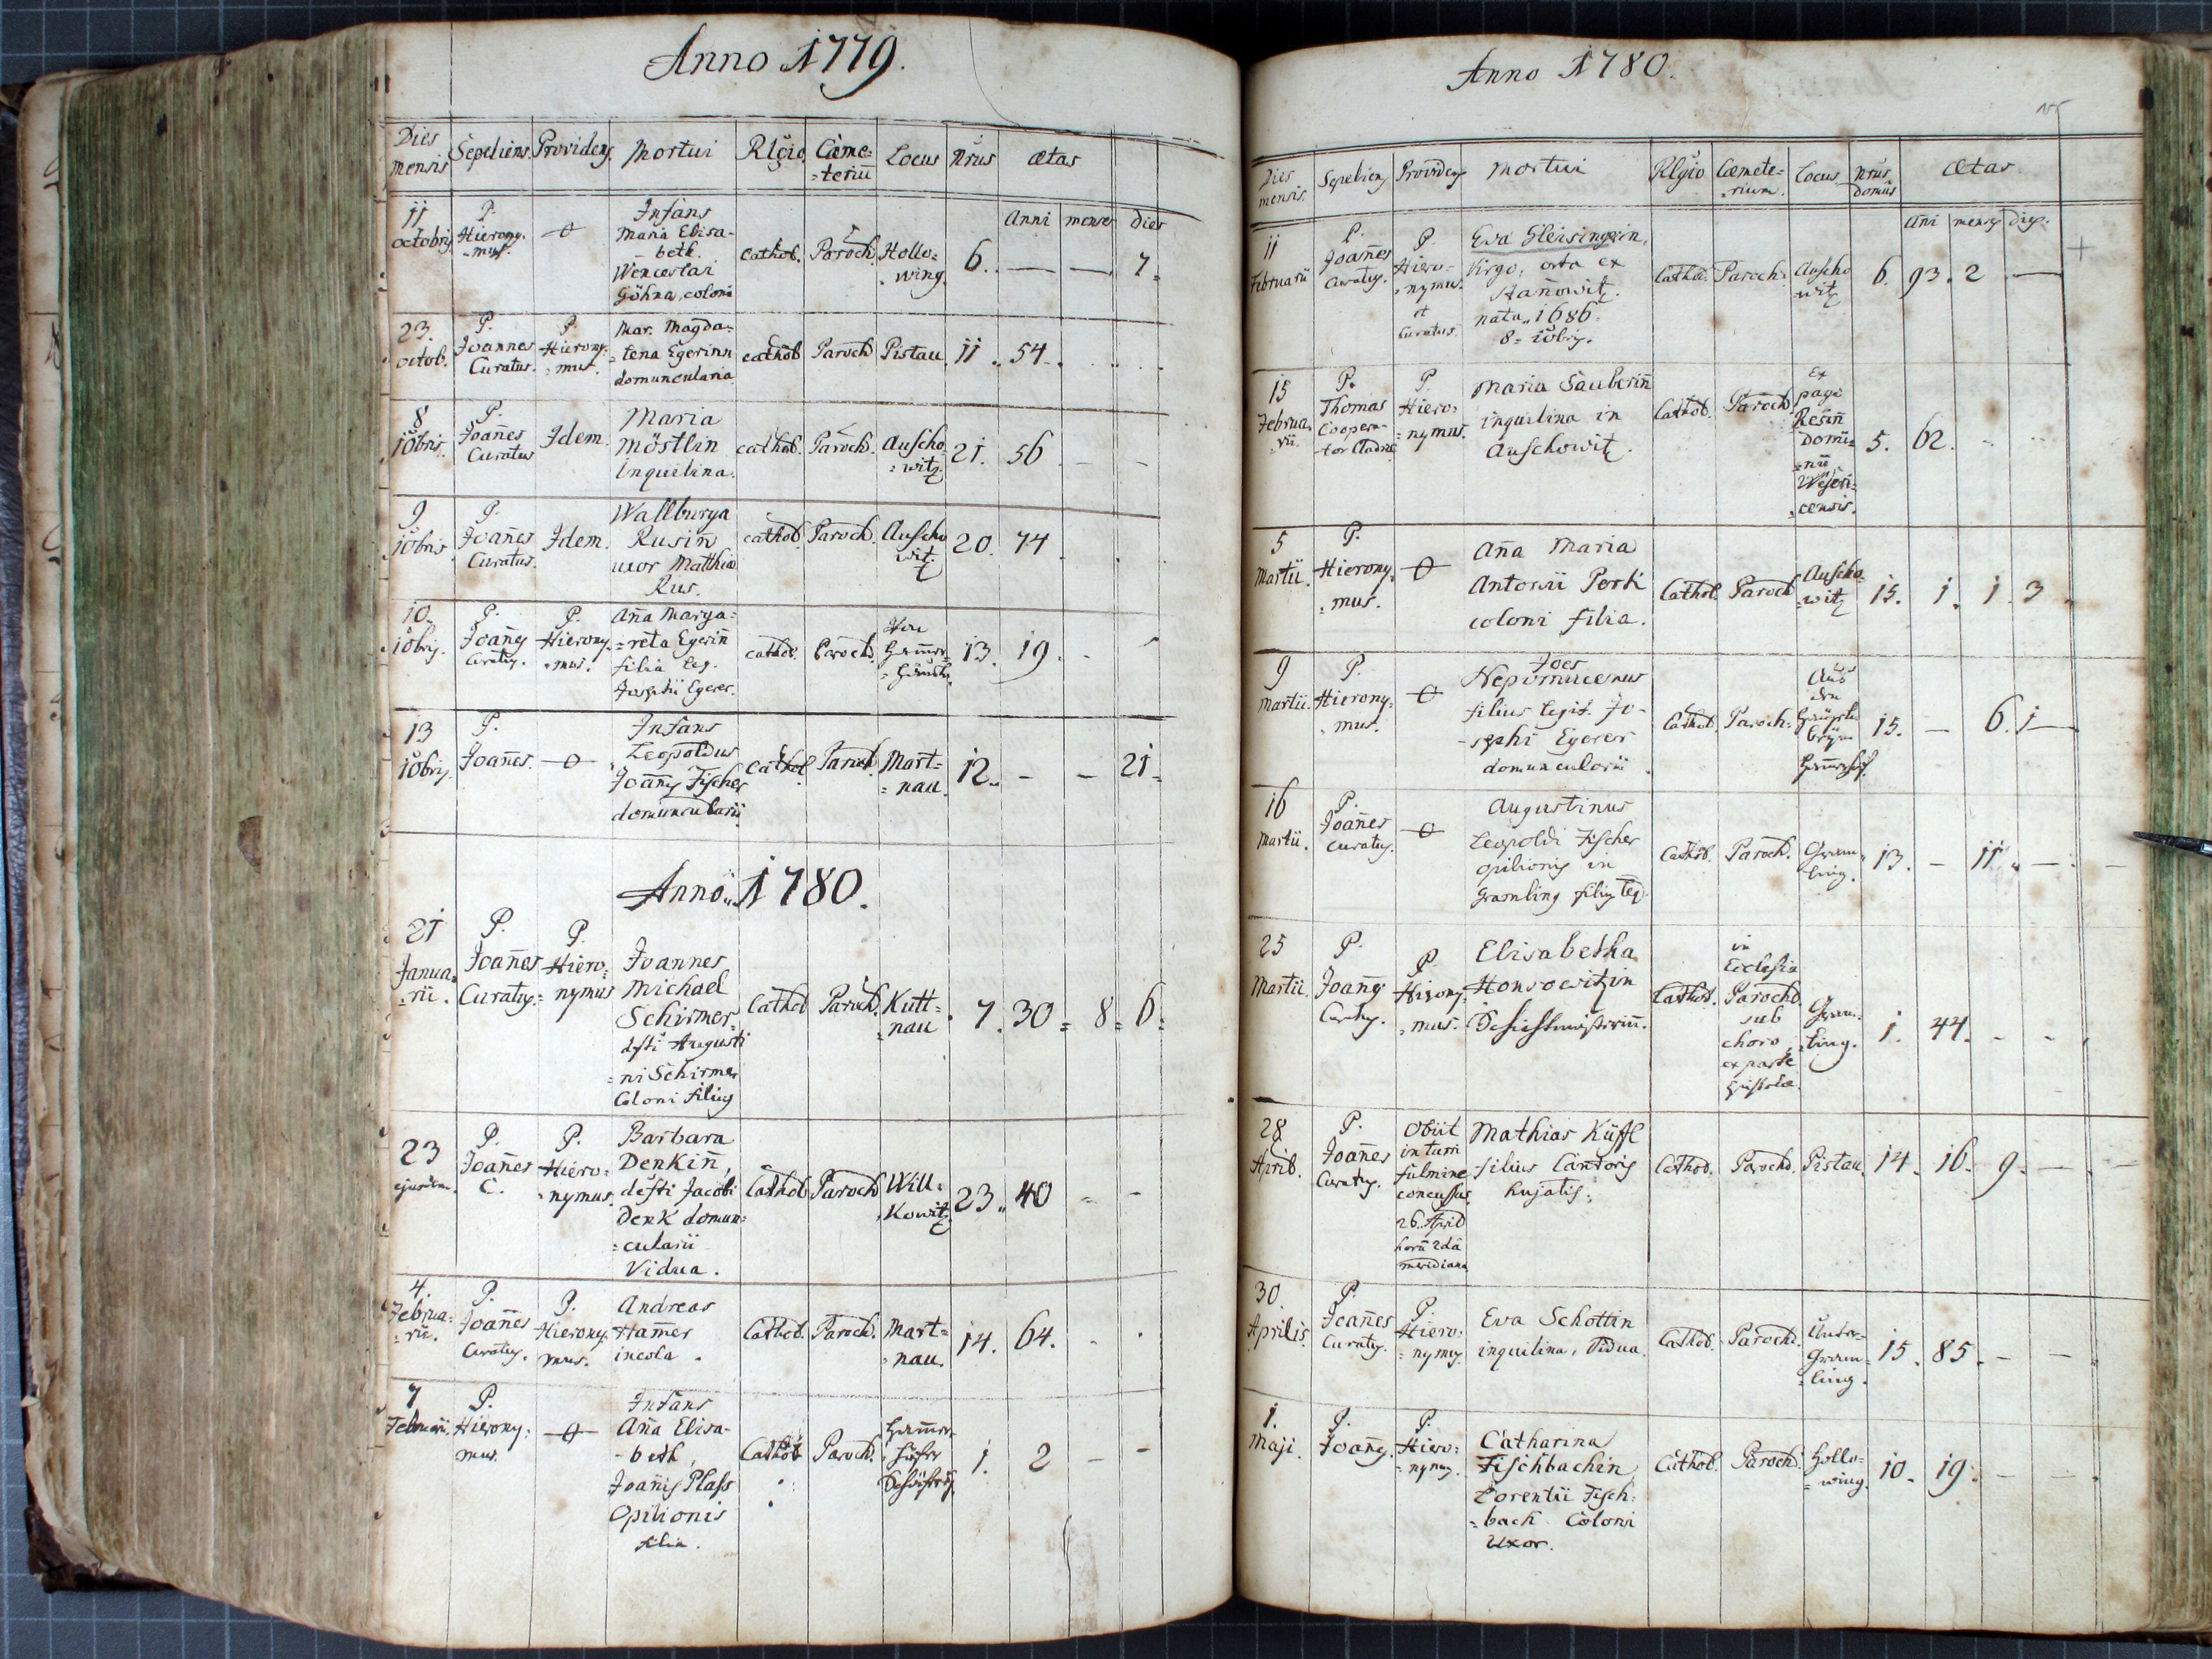 Anno 1779.
Dies mensis Sepeliens Providens Mortui Rlgio Cæme=teriu Locus Nrus ætas
Anni menses dies
11 octobris P. Hierony=mus. —o— Infans Maria Elisa-beth. Wenceslai Göhna, coloni Cathol. Paroch. Hollo=wing. 6. — — 7.
23. octob. P. Joannes Curatus. P. Hierony=mus. Mar. Magda=lena Egerinn domuncularia Cathol Paroch Pistau 11. 54.
8 10bris. P. Joañes Curatus Idem. Maria Möstlin Inquilina. Cathol. Paroch. Auscho=witz. 21. 56 — —
9 10bris P. Joañes Curatus. Idem. Wallburga Rusiñ uxor Matthiæ Rus. Cathol. Paroch. Auscho witz 20. 74
10. 10bris. P. Joañes Curatus. P. Hierony=mus. Aña Marga=reta Egeriñ filia leg. Josephi Egerer. Cathol. Paroch. 13. 19.
13 10bris. P. Joañes. —o— Infans Leopoldus Joañis Fischer domuncularii Cathol Paroch Mart=nau. 12. — — 21
Anno 1780.
21 Janua=rii. P. Joañes Curatus. P. Hiero=nymus Joannes Michael Schirmer, dfti Augusti=ni Schirmer Coloni filius Cathol Paroch. Kutt=nau 7. 30 = 8 = 6
23 ejusdem. P. Joañes C. P. Hiero=nymus. Barbara Denkiñ, defti Jacobi Denk domun=cularii Vidua. Cathol Paroch Will=kowitz 23. 40 - -
4. Februa=rii. P. Joañes Curatus. P. Hierony=mus. Andreas Ham̃er incola. Cathol. Paroch. Mart=nau. 14. 64.
7 Februarii. P. Hierony=mus. —o— Infans Aña Elisa-beth, Joañis Plass Opilionis filia. Cathol Paroch. 1. 2 - -
Anno 1780.
Dies mensis. Sepeliens Providens Mortui Rlgio Cæmete=rium. Locus Nrus domûs Ætas
Añi menses dies.
11 Februarii P. Joañes Curatus. P. Hiero=nymus. et Curatus Eva Gleisingerin, Virgo, orta ex Hañowitz. nata 1686. 8= 10bris. Cathol. Paroch. Auscho witz 6. 93. 2 —
15 Februa=rii. P. Thomas Coopera=tor P. Hiero=nymus. Maria Sauberiñ inquilina in Auschowitz. Cathol. Paroch. Ex pago Resiñ Domi=nii 5. 62.
5 Martii. P. Hierony=mus. —o— Aña Maria Antonii Perk coloni filia. Cathol. Paroch Auscho=witz 15. 1. 1. 3.
9 Martii. P. Hierony=mus. —o— Joes Nepomucenus filius legit. Jo=sephi Egerer domuncularii Cathol. Paroch. 15. — 6. 1
16 Martii. P. Joañes Curatus. —o— Augustinus Leopoldi Fischer opilionis in Gramling filius leg. Cathol. Paroch. Gram=ling. 13. — 11. —
25 Martii. P. Joañes Curatus. P. Hierony=mus. Elisabetha Honsowitzin Cathol. in Ecclesia Paroch sub choro ex parte Epistolæ. Gram=ling. 1. 44.
28. April. P. Joañes Curatus. Obiit in turri fulmine concussus 26. April horâ 2dâ meridiana Mathias Küffl filius Cantoris hujatis. Cathol. Paroch. Pistau. 14. 16. 9. —
30. Aprilis P. Joañes Curatus. P. Hiero=nymus. Eva Schottin inquilina, Vidua. Cathol. Paroch. Unter=Gram=ling. 15. 85. — —
1. Maji. P. Joañes. P. Hiero=nymus. Catharina Fischbachin, Lorentii Fisch=bach Coloni Uxor. Cathol. Paroch. Hollo=wing. 10. 19.